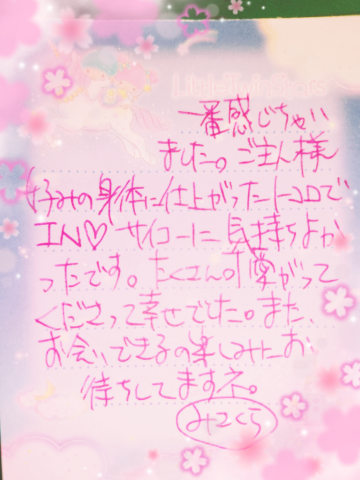 Little Twin Stars
一番感じちゃい
ました。ご主人様
好みの身体に仕上がったトコロで
IN♡ サイコーに気持ちよか
ったです。たくさん可愛がって
くださって幸せでした。また、
お会いできるの楽しみにお
待ちしてますネ。
みさくら